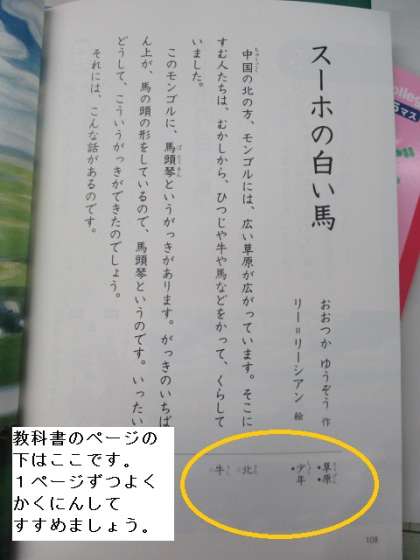 スーホの白い馬
おおつか ゆうぞう 作
リー=リーシアン 絵
中国の北の方、モンゴルには、広い草原が広がっています。そこに
すむ人たちは、むかしから、ひつじや牛や馬などをかって、くらして
いました。
このモンゴルに、馬頭琴というがっきがあります。がっきのいちば
ん上が、馬の頭の形をしているので、馬頭琴というのです。いったい
どうして、こういうがっきができたのでしょう。
それには、こんな話があるのです。
草原
少年
北
牛
108
教科書のページの
下はここです。
1ページずつよく
かくにんして
すすめましょう。